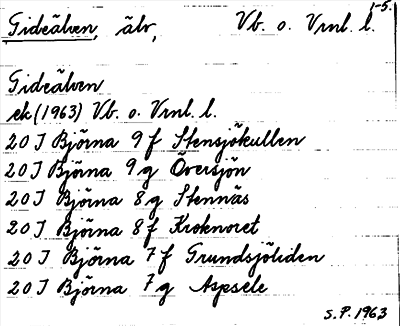 1-5.
Gideälven, älv, Vb. o. Vrnl. l.
Gideälven
ek (1963) Vb. o. Vrnl. l.
20 J Björna 9 f Stensjökullen
20 J Björna 9 g Översjön
20 J Björna 8 g Stennäs
20 J Björna 8 f Kroknoret
20 J Björna 7 f Grundsjöliden
20 J Björna 7 g Aspsele
S.P. 1963